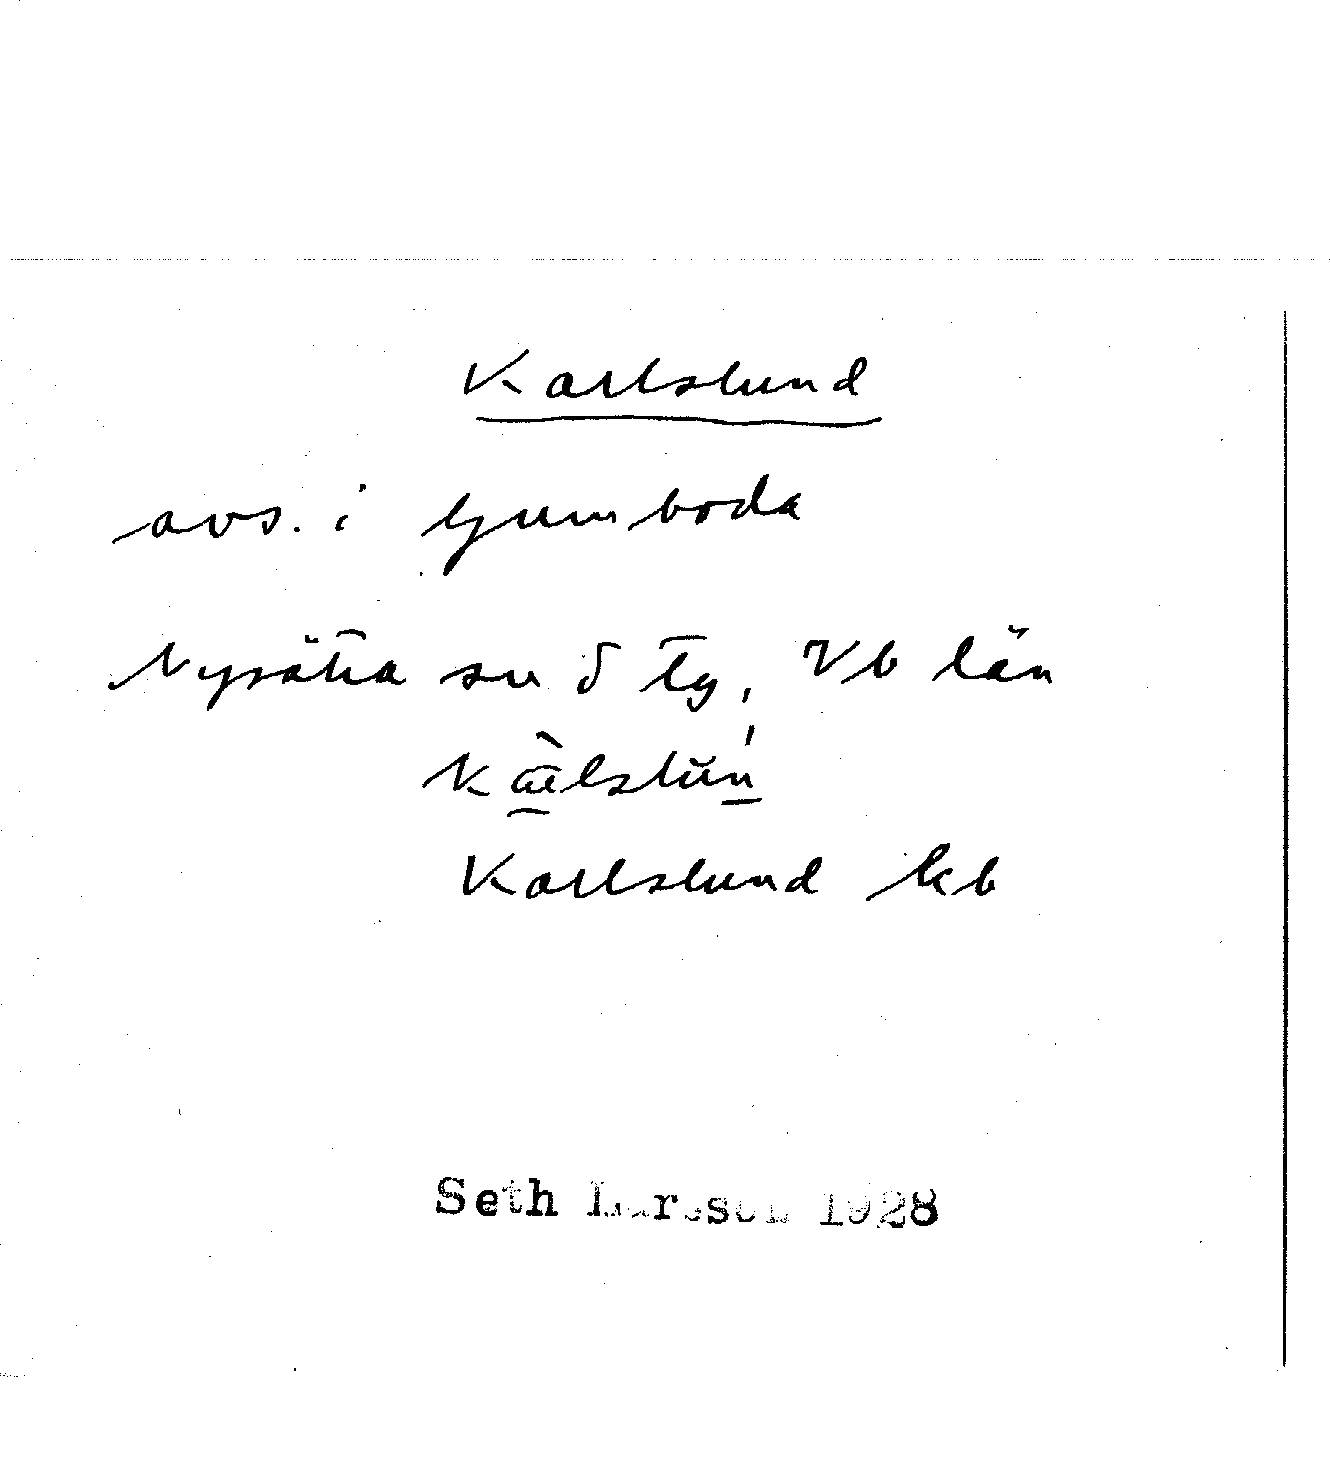 Karlslund
avs. i Ljumboda
Nysätra sn S Tg, Vb län
Karlslund kb
Seth Larsson 1928